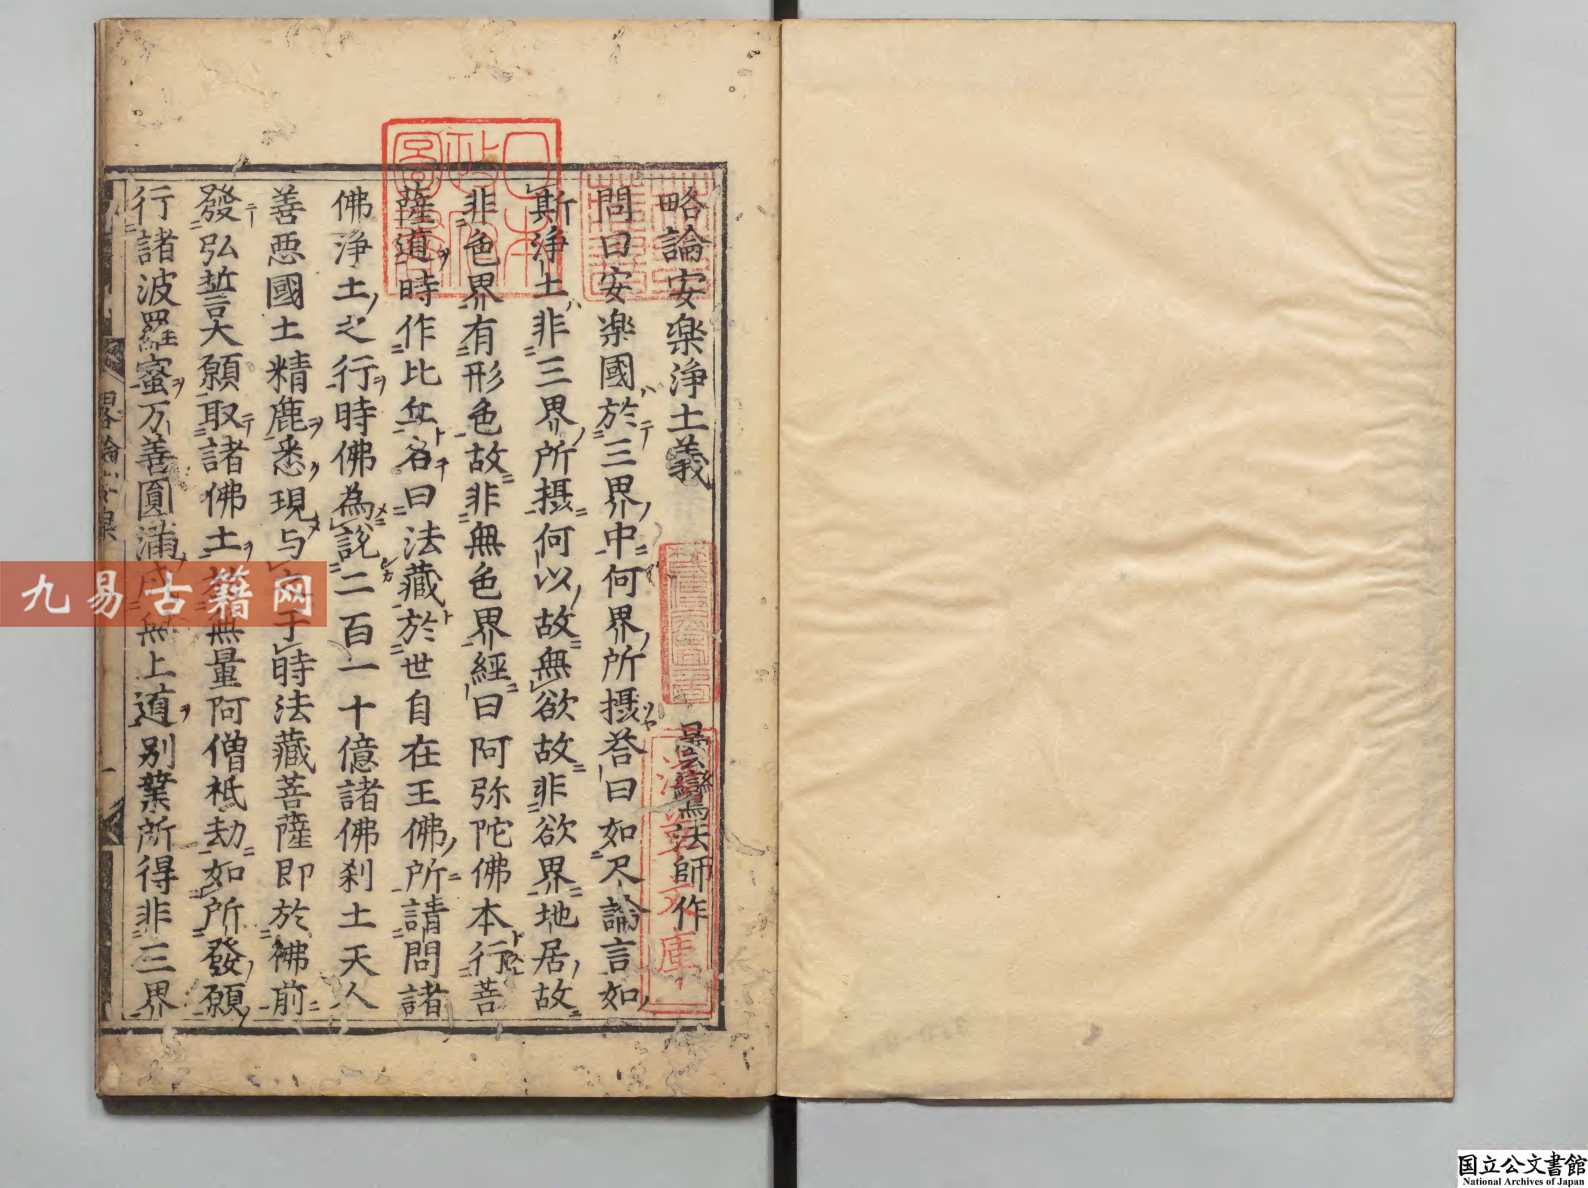 略論安楽浄土義
曇鸞法師作
問曰安楽國於三界中何界所摂荅曰如尺論言如
斯浄土非三界所摂何以故無欲故非欲界地居故
非色界有形色故非無色界經曰阿弥陀佛本行菩
薩道時作比丘名曰法藏於世自在王佛所請問諸
佛浄土之行時佛為說二百一十億諸佛刹土天人
善悪國土精麁悉現与
時法藏菩薩即於佛前
發弘誓大願取諸佛土
無量阿僧祇劫如所發願
行諸波羅蜜万善圓滿
無上道別業所得非三界
九易古籍网
日本
国立公文書館
National Archives of Japan